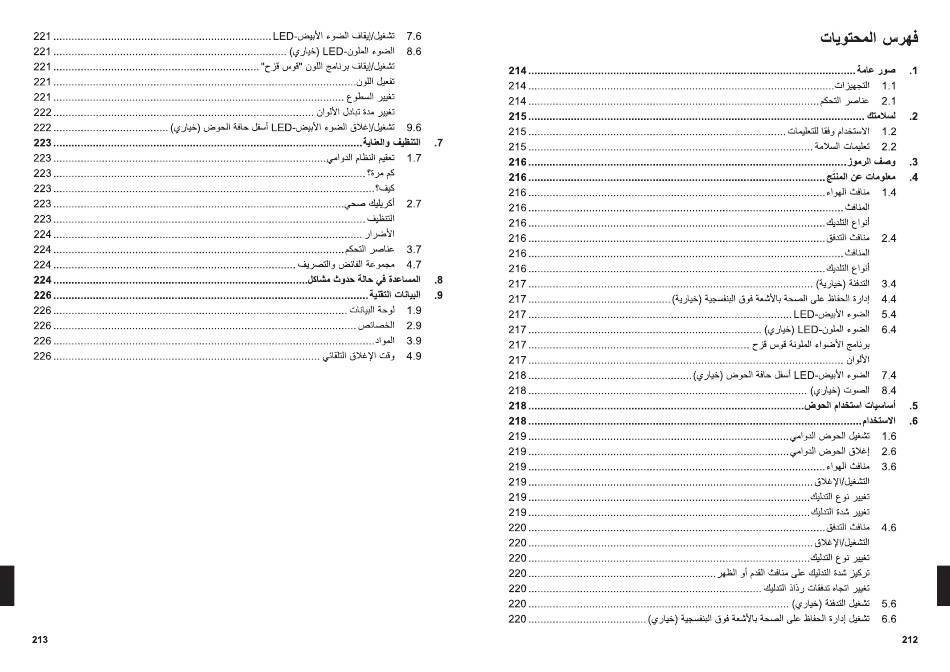 فهرس المحتويات
1. صور عامة ... 214
1.1 التجهيزات ... 214
2.1 عناصر التحكم ... 214
2. لسلامتك ... 215
1.2 الاستخدام وفقا للتعليمات ... 215
2.2 تعليمات السلامة ... 215
3. وصف الرموز ... 216
4. معلومات عن المنتّج ... 216
1.4 منافث الهواء ... 216
المنافث ... 216
أنواع التلديك ... 216
2.4 منافث التدفق ... 216
المنافث ... 216
أنواع التلديك ... 216
3.4 التدفئة (خيارية) ... 217
4.4 إدارة الحفاظ على الصحة بالأشعة فوق البنفسجية (خيارية) ... 217
5.4 الضوء الأبيض-LED ... 217
6.4 الضوء الملون-LED (خياري) ... 217
برنامج الأضواء الملونة قوس قزح ... 217
الألوان ... 217
7.4 الضوء الأبيض-LED أسفل حافة الحوض (خياري) ... 218
8.4 الصوت (خياري) ... 218
5. أساسيات استخدام الحوض ... 218
6. الاستخدام ... 218
1.6 تشغيل الحوض الدوامي ... 219
2.6 إغلاق الحوض الدوامي ... 219
3.6 منافث الهواء ... 219
التشغيل/الإغلاق ... 219
تغيير نوع التدليك ... 219
تغيير شدة التدليك ... 219
4.6 منافث التدفق ... 220
التشغيل/الإغلاق ... 220
تغيير نوع التدليك ... 220
تركيز شدة التدليك على منافث القدم أو الظهر ... 220
تغيير اتجاه تدفقات رذاذ التدليك ... 220
5.6 تشغيل التدفئة (خياري) ... 220
6.6 تشغيل إدارة الحفاظ على الصحة بالأشعة فوق البنفسجية (خياري) ... 220
212
7.6 تشغيل/إيقاف الضوء الأبيض-LED ... 221
8.6 الضوء الملون-LED (خياري) ... 221
تشغيل/إيقاف برنامج اللون "قوس قزح" ... 221
تفعيل اللون ... 221
تغيير السطوع ... 221
تغيير مدة تبادل الألوان ... 222
9.6 تشغيل/إغلاق الضوء الأبيض-LED أسفل حافة الحوض (خياري) ... 222
7. التنظيف والعناية ... 223
1.7 تعقيم النظام الدوامي ... 223
كم مرة؟ ... 223
كيف؟ ... 223
2.7 أكريليك صحي ... 223
التنظيف ... 223
الأضرار ... 224
3.7 عناصر التحكم ... 224
4.7 مجموعة الفائض والتصريف ... 224
8. المساعدة في حالة حدوث مشاكل ... 224
9. البيانات التقنية ... 226
1.9 لوحة البيانات ... 226
2.9 الخصائص ... 226
3.9 المواد ... 226
4.9 وقت الإغلاق التلقائي ... 226
213